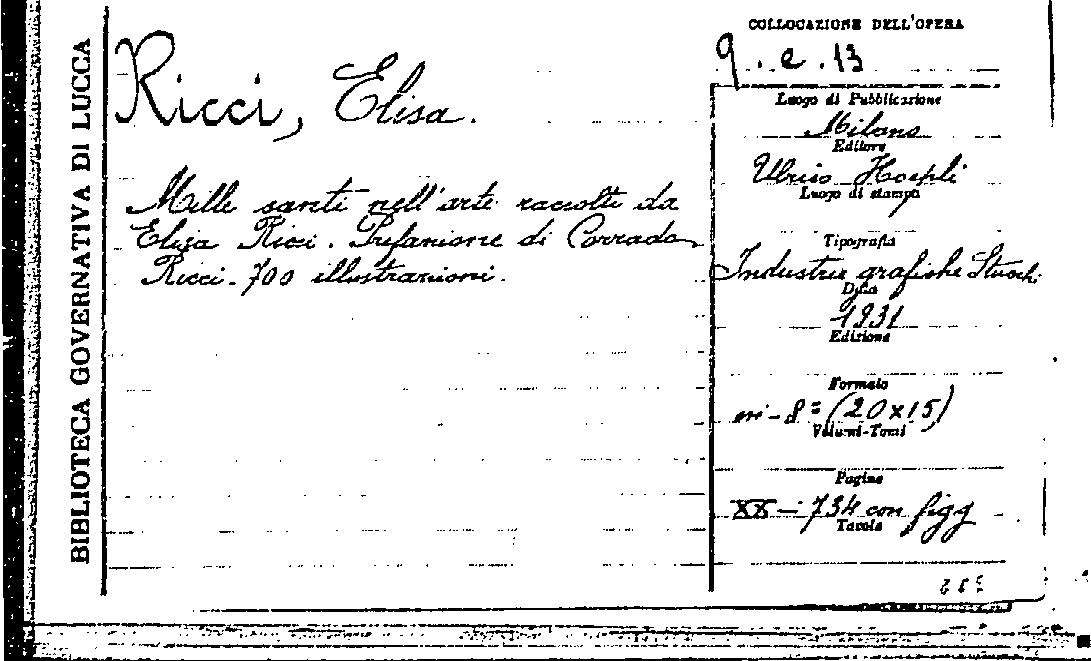 BIBLIOTECA GOVERNATIVA DI LUCCA
Ricci, Elisa.
Mille santi nell'arte raccolti da
Elisa Ricci. Prefazione di Corrado
Ricci. 700 illustrazioni.
COLLOCAZIONE DELL'OPERA
9. e. 13
Luogo di Pubblicazione
Milano
Editore
Ulrico Hoepli
Luogo di stampa
Tipografia
Industrie grafiche Stucchi
Data
1931
Edizione
Formato
in-8° (20x15)
Volumi-Tomi
Pagine
XX-734 con figg
Tavole